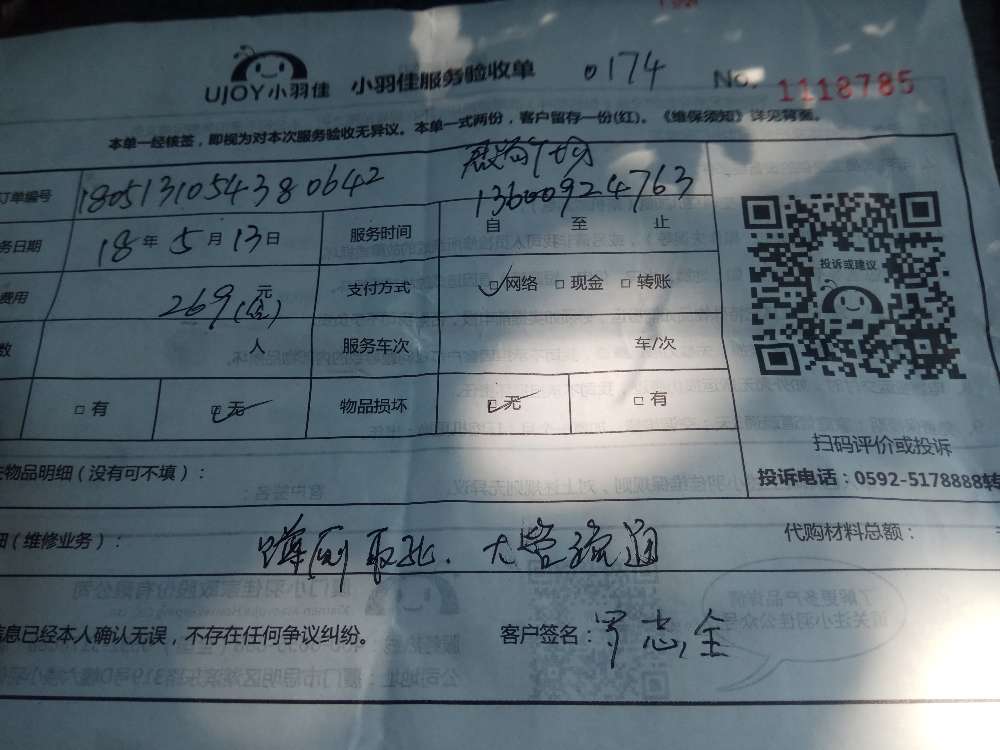 UJOY小羽佳 小羽佳服务验收单 0174 No. 1118785
本单一经核签，即视为对本次服务验收无异议。本单一式两份，客户留存一份(红)。《维保须知》详见背面。
订单编号 180513105438 0642 13600924763
务日期 18年5月13日 服务时间 自 至 止
费用 269 元 支付方式 □网络 □现金 □转账
数 人 服务车次 车/次
□有 □无 物品损坏 □无 □有
投诉或建议
扫码评价或投诉
投诉电话：0592-5178888转
物品明细（没有可不填）：
（维修业务）： 蹲厕取孔．大管疏通 代购材料总额：
信息已经本人确认无误，不存在任何争议纠纷。 客户签名：罗志全